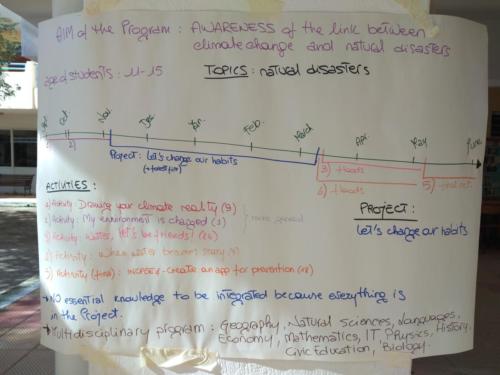 AIM of the Program : AWARENESS of the link between
climate change and natural disasters
age of students : 11-15
TOPICS : natural disasters
Oct. Nov. Dec. Jan. Feb. March Apr. May June
1) 2)
Project : let's change our habits
3) floods
4) floods
5)
ACTIVITIES :
1) Activity Drawing your climate reality (9)
2) Activity : My environment is changed (1)
3) Activity : Water, let's be friends! (26)
4) Activity : When water becomes scary
5) Activity (final) : increase-create an app for prevention
more general
PROJECT :
let's change our habits
NO essential knowledge to be integrated because everything is
in the Project.
Multidisciplinary program : Geography, Natural sciences, Languages,
Economy, Mathematics, IT, Physics, History,
Civic Education, Biology.